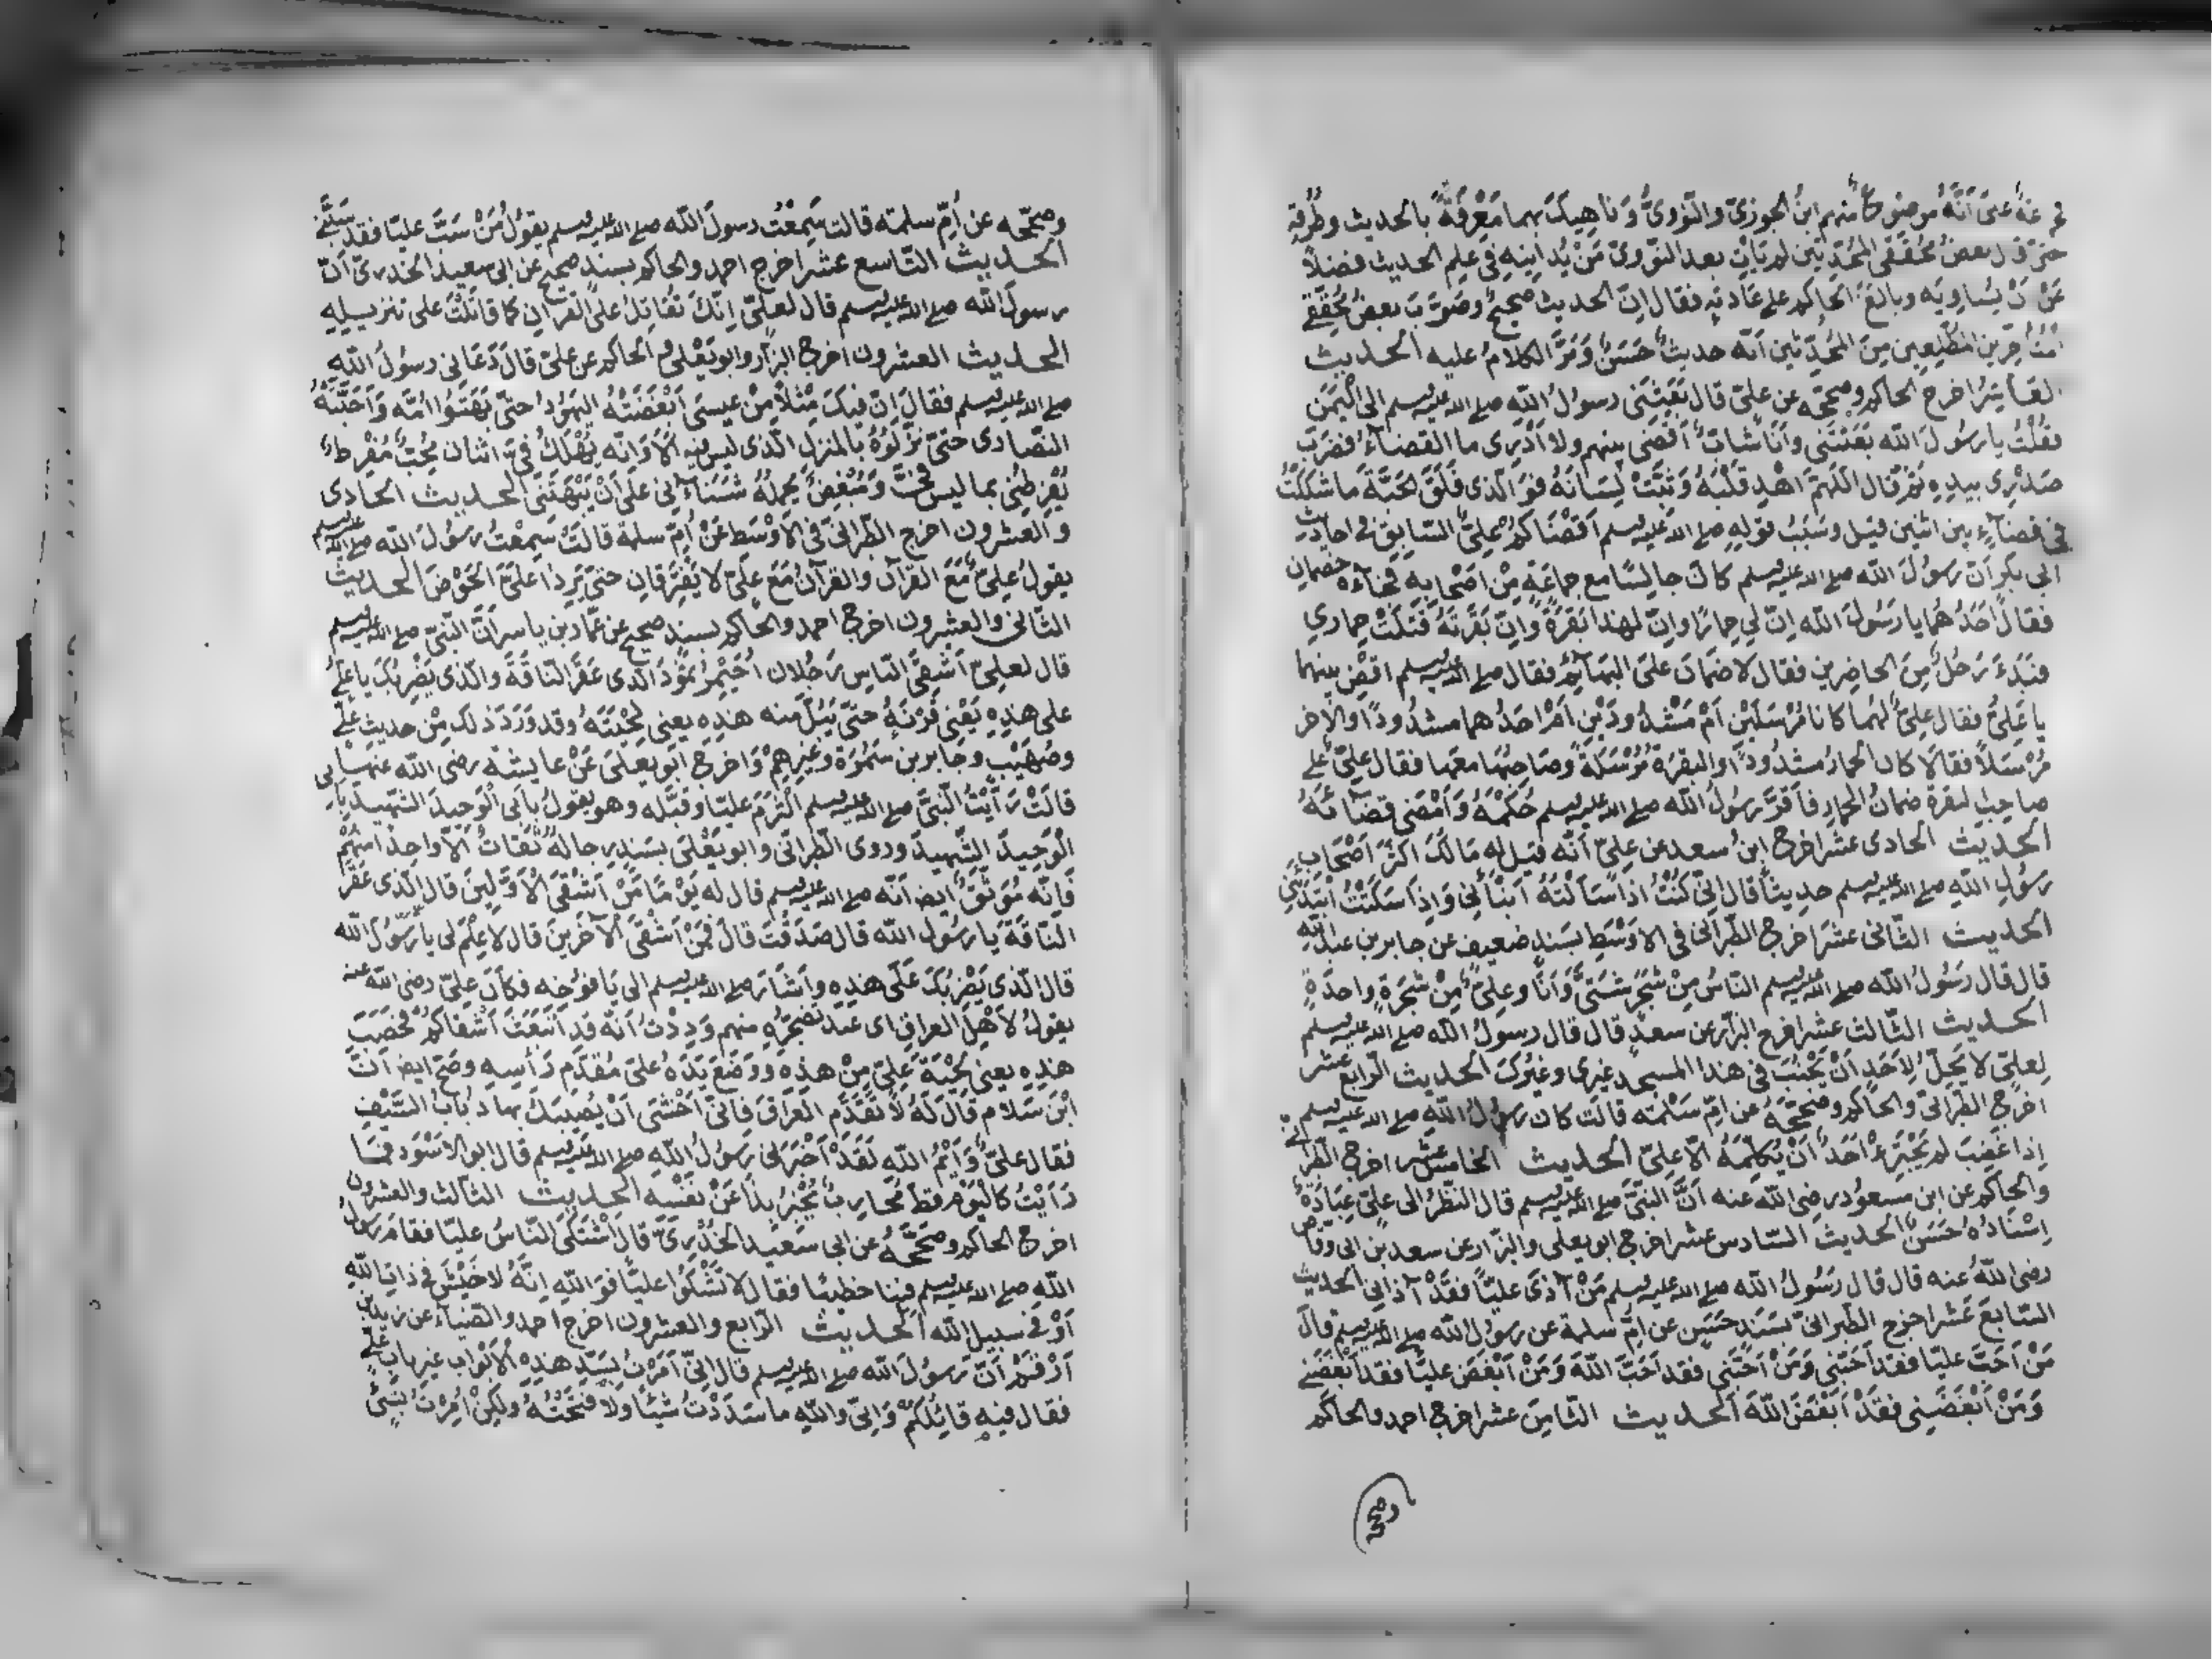 عة على أنّه موضوع منهم ابن الجوزيّ والنّوويّ وناهيك بهما مَعْرِفَةً بالحديث وطُرُقِه
حتى قال بعضُ مُحَقّقي المُحَدّثين لم يأتِ بعد النّوويّ مَنْ يُدانيه في عِلم الحديث فضلاً
عَنْ أنْ يُساويه وبالغ الحاكم على عادتِه فقال إنّ الحديث صحيح وصَوَّبَ بعض مُحقّقي
المتأخّرين المطّلعين مِنَ المُحَدّثين أنّه حديثٌ حَسَنٌ وَمَرَّ الكلامُ عليه الحديث
العاشر اخرج الحاكم وصححه عن عليّ قال بَعَثَنى رسولُ اللّه صلى الله عليه وسلم الى اليَمَن
فقُلْتُ يا رسُولَ اللّه بَعَثْتَنى وأنَا شابٌّ أقْضى بينهم ولا أَدْرِى ما القضاءُ فضَربَ
صَدْرِى بيدِهِ ثم قال اللّهمّ اهْدِ قلْبَهُ وَثَبِّتْ لِسَانَهُ فوَالّذى فَلَقَ الحَبَّةَ ما شككتُ
فى قضاءٍ بين اثنين قيل وسَبَبُ قولِهِ صلى الله عليه وسلم أقْضَاكم عليٌّ السّابق فى احاديث
ابى بكرٍ أنّ رسُولَ اللّه صلى الله عليه وسلم كان جالِسًا مع جماعَةٍ مِنْ اَصْحابِهِ فجاءَهُ خصمان
فقال أَحَدُهُما يا رَسُولَ اللّه إنّ لِي حِمارًا وانّ لهذا بَقَرَةً وَانّ بَقَرَتَهُ قَتَلَتْ حِماري
فبَدَءَ رَجُلٌ مِنَ الحاضِرين فقال لا ضَمَانَ على البَهائِم فقال صلى الله عليه وسلم اقْضِ بينهما
يا عَلِيُّ فقال عليٌّ لهُما كانا مُرْسَلَيْنِ أَمْ مَشْدُودَيْنِ أمْ اَحَدُهما مشدُودًا والآخر
مُرْسَلاً فقالا كان الحمارُ مشدُودًا والبقرَةُ مُرْسَلَةً وصَاحِبُهَا معَها فقال عليٌّ على
صاحِبِ البقرة ضمانُ الحمارِ فأقرَّ رسُولُ اللّه صلى الله عليه وسلم حُكمَهُ وَأمْضى قضاءَهُ
الحديث الحادى عشر اخرج ابنُ سعد عن عليّ أنّه قيل له مَا لَكَ اكثرُ أصْحَابِ
رسُولِ اللهِ صلى الله عليه وسلم حديثًا قال إنّى كُنْتُ اذا سَأَلتُهُ أنبَأَنِى وَإِذَا سَكَتُّ ابْتَدَئَنِى
الحديث الثّانى عشر اخرج الطّبرانى فى الاوْسَطِ بسَندٍ ضعيف عن جابر بن عبد اللّه
قال قال رسُولُ اللّه صلى الله عليه وسلم النّاسُ مِنْ شَجَرٍ شَتَّى وَأنَا وعليٌّ مِنْ شَجَرَةٍ واحدَةٍ
الحديث الثّالث عشر اخرج البزّار عن سعدٍ قال قال رسولُ اللّه صلى الله عليه وسلم
لِعليّ لا يَحِلُّ لِأَحَدٍ أَنْ يُجْنِبَ فى هذا المسجد غيرى وغيرُكَ الحديث الرّابع عشر
اخرج الطّبرانيّ والحاكم وصحّحَهُ عن امّ سَلَمَه قالت كان رسُولُ اللّهِ صلى الله عليه وسلم
إذا غَضِبَ لم يَجْتَرِءْ أَحَدٌ أَنْ يُكَلّمَهُ الّا عليّ الحديث الخامس عشر اخرج الطّبرا
والحاكم عن ابن مسعُود رضى اللّه عنه أنَّ النّبيَّ صلى الله عليه وسلم قال النّظرُ الى عليّ عِبَادَةٌ
إسْنَادُهُ حَسَنٌ الحديث السّادس عشر اخرج ابو يعلى والبزّار عن سعد بن ابى وقّاص
رضى اللّهُ عنه قال قال رَسُولُ اللّه صلى الله عليه وسلم مَنْ آذَى عليًّا فقَدْ آذانِى الحديث
السّابعَ عَشر اخرج الطّبرانيّ بسَند حَسَن عن أمّ سلمة عن رسولِ اللّه صلى الله عليه وسلم قال
مَنْ أحَبَّ عليّا فقد أحَبّنى وَمَنْ أحَبَّنى فقد أحَبَّ اللّهَ وَمَنْ أَبْغَضَ عليًّا فقد أبغَضَنى
وَمَنْ أبْغَضَنِى فقَدْ أَبْغَضَ اللّهَ الحديث الثّامِن عشر اخرج احمد والحاكم
وصحّحه عن اُمّ سلمته قالت سَمِعْتُ رسولَ اللّه صلى الله عليه وسلم يقولُ مَنْ سَبَّ عليًّا فقد سَبَّنى
الحديث التّاسع عشر اخرج احمد والحاكم بسندٍ صحيح عن ابى سعيد الخدرىّ أنّ
رسولَ اللّه صلى الله عليه وسلم قال لعليّ إنّكَ تُقاتِلُ على القرآن كما قاتَلْتَ على تنزيله
الحديث العشرون اخرج البزّار وابو يَعْلى والحاكم عن عليّ قال دَعَانى رسُولُ اللّه
صلى الله عليه وسلم فقال إنّ فيكَ مَثَلاً مِنْ عيسى أبْغَضَتْهُ اليَهُودُ حتّى بَهَتُوا امَّه وَأحَبَّتْهُ
النّصارى حتىّ نزّلُوهُ بالمنزل الّذى ليس فيه ألَا وَإنّه يَهْلَكُ فيَّ اثنان مُحِبٌّ مُفْرِطٌ
يُقْرِظُنِى بما ليس فيَّ وَمُبْغِضٌ يَحْمِلُهُ شَنَآنِى عَلى أنْ يَبْهَتَنِى الحديث الحادى
والعشرون اخرج الطّبرانىّ فى الأوْسَطِ عَنْ أمّ سلمة قالَتْ سَمِعْتُ رسُولَ اللّه صلى الله عليه وسلم
يقولُ عليّ مَعَ القرآن والقرآنُ مَعَ عليّ لا يفْترقانِ حتى يَرِدَا عَلَيَّ الحَوْضَ الحديث
الثّانى والعشرون اخرج احمد والحاكم بسندٍ صحيح عن عمّار بن ياسر أنّ النّبىّ صلى الله عليه وسلم
قال لعليّ أَشْقَى النّاس رَجُلان أُحَيْمِرُ ثَمُودَ الّذى عَقَرَ النّاقَةَ والّذى يَضْرِبُكَ يا عليّ
على هذِهِ يَعْنى قَرْنَهُ حتىّ يَبُلَّ منه هذِهِ يعنى لِحْيَتَهُ وقد وَرَدَ ذلك مِنْ حديث عليّ
وصُهَيْب وجابر بن سَمُرَة وغيرِهِمْ وَاخرج ابو يعلى عَنْ عايشة رضى اللّه عنها
قالتْ رَأَيْتُ النّبيَّ صلى الله عليه وسلم التَزَمَ عليّا وقبَّله وهو يقولُ بأبى الوَحيدَ الشّهيد بأبى
الوَحِيدَ الشّهيدَ وروى الطّبرانى وابو يَعْلَى بسَندٍ رِجالُهُ ثِقَاتٌ الّا واحِدًا منهُمْ
فإنّه مُوَثَّقٌ أيضا أنّه صلى الله عليه وسلم قال له يَوْمًا مَنْ أَشْقَى الْأَوَّلِينَ قال الّذى عَقَرَ
النّاقَةَ يَا رسُولَ اللّه قال صَدَقْتَ قال فمَنْ أشْقَى الآخَرِينَ قال لا عِلْمَ لى يا رَسُولَ اللّه
قال الّذى يَضْرِبُكَ عَلَى هذِهِ وأشَارَ صلى الله عليه وسلم الى يَافُوخِهِ فكَانَ عليّ رضى اللّه عنه
يقولُ لأهْلِ العراق اى عند تضجّرهِ منهم وَدِدْتُ أنّه قدِ انْبَعَثَ أشْقَاكُمْ فخَضَبَ
هذِهِ يعنى لِحْيَةَ عَلِيّ مِنْ هذِهِ وَوَضَعَ يَدَهُ على مُقَدَّمِ رَأْسِهِ وصَحّ ايضا انّ
ابْنَ سَلام قَالَ لَهُ لا تَقْدَمِ العِرَاقَ فإنّى أخْشَى أنْ يُصِيبَكَ بها ذُبَابُ السَّيْفِ
فقال عليٌّ وَأيْمُ اللّه لقَدْ أخْبَرَنى رَسُولُ اللّهِ صلى الله عليه وسلم قال ابو الاسْوَد فمَا
رَأَيْتُ كاليَوْم قطّ مُحَاربٌ يُخْبِرُ بذَا عَنْ نَفْسِهِ الحديث الثّالث والعشرون
اخرج الحاكم وصَحَّحَهُ عن ابى سعيد الخُدْرِيّ قال اشْتَكَى النّاسُ عليًّا فقامَ رَسولُ
اللّهِ صلى الله عليه وسلم فينا خطيبًا فقال لا تَشْكُوا عليًّا فوَ اللّهِ إنَّهُ لَأَخْشَنُ فى ذاتِ اللّهِ
أوْ فى سبيل اللّه الحديث الرّابع والعشرون اخرج احمد والضّياء عن زيد بن
أَرْقَمْ أنّ رسُولَ اللّه صلى الله عليه وسلم قال إنّى أمَرْتُ بسَدّ هذِهِ الْأَبْوَابِ غيرَ بابِ عليّ
فقال فيهِ قائِلُكُمْ وَإنّى واللّهِ ما سَدَدْتُ شَيْئًا ولا فَتَحْتُهُ ولكِنْ أُمِرْتُ بشَيْءٍ